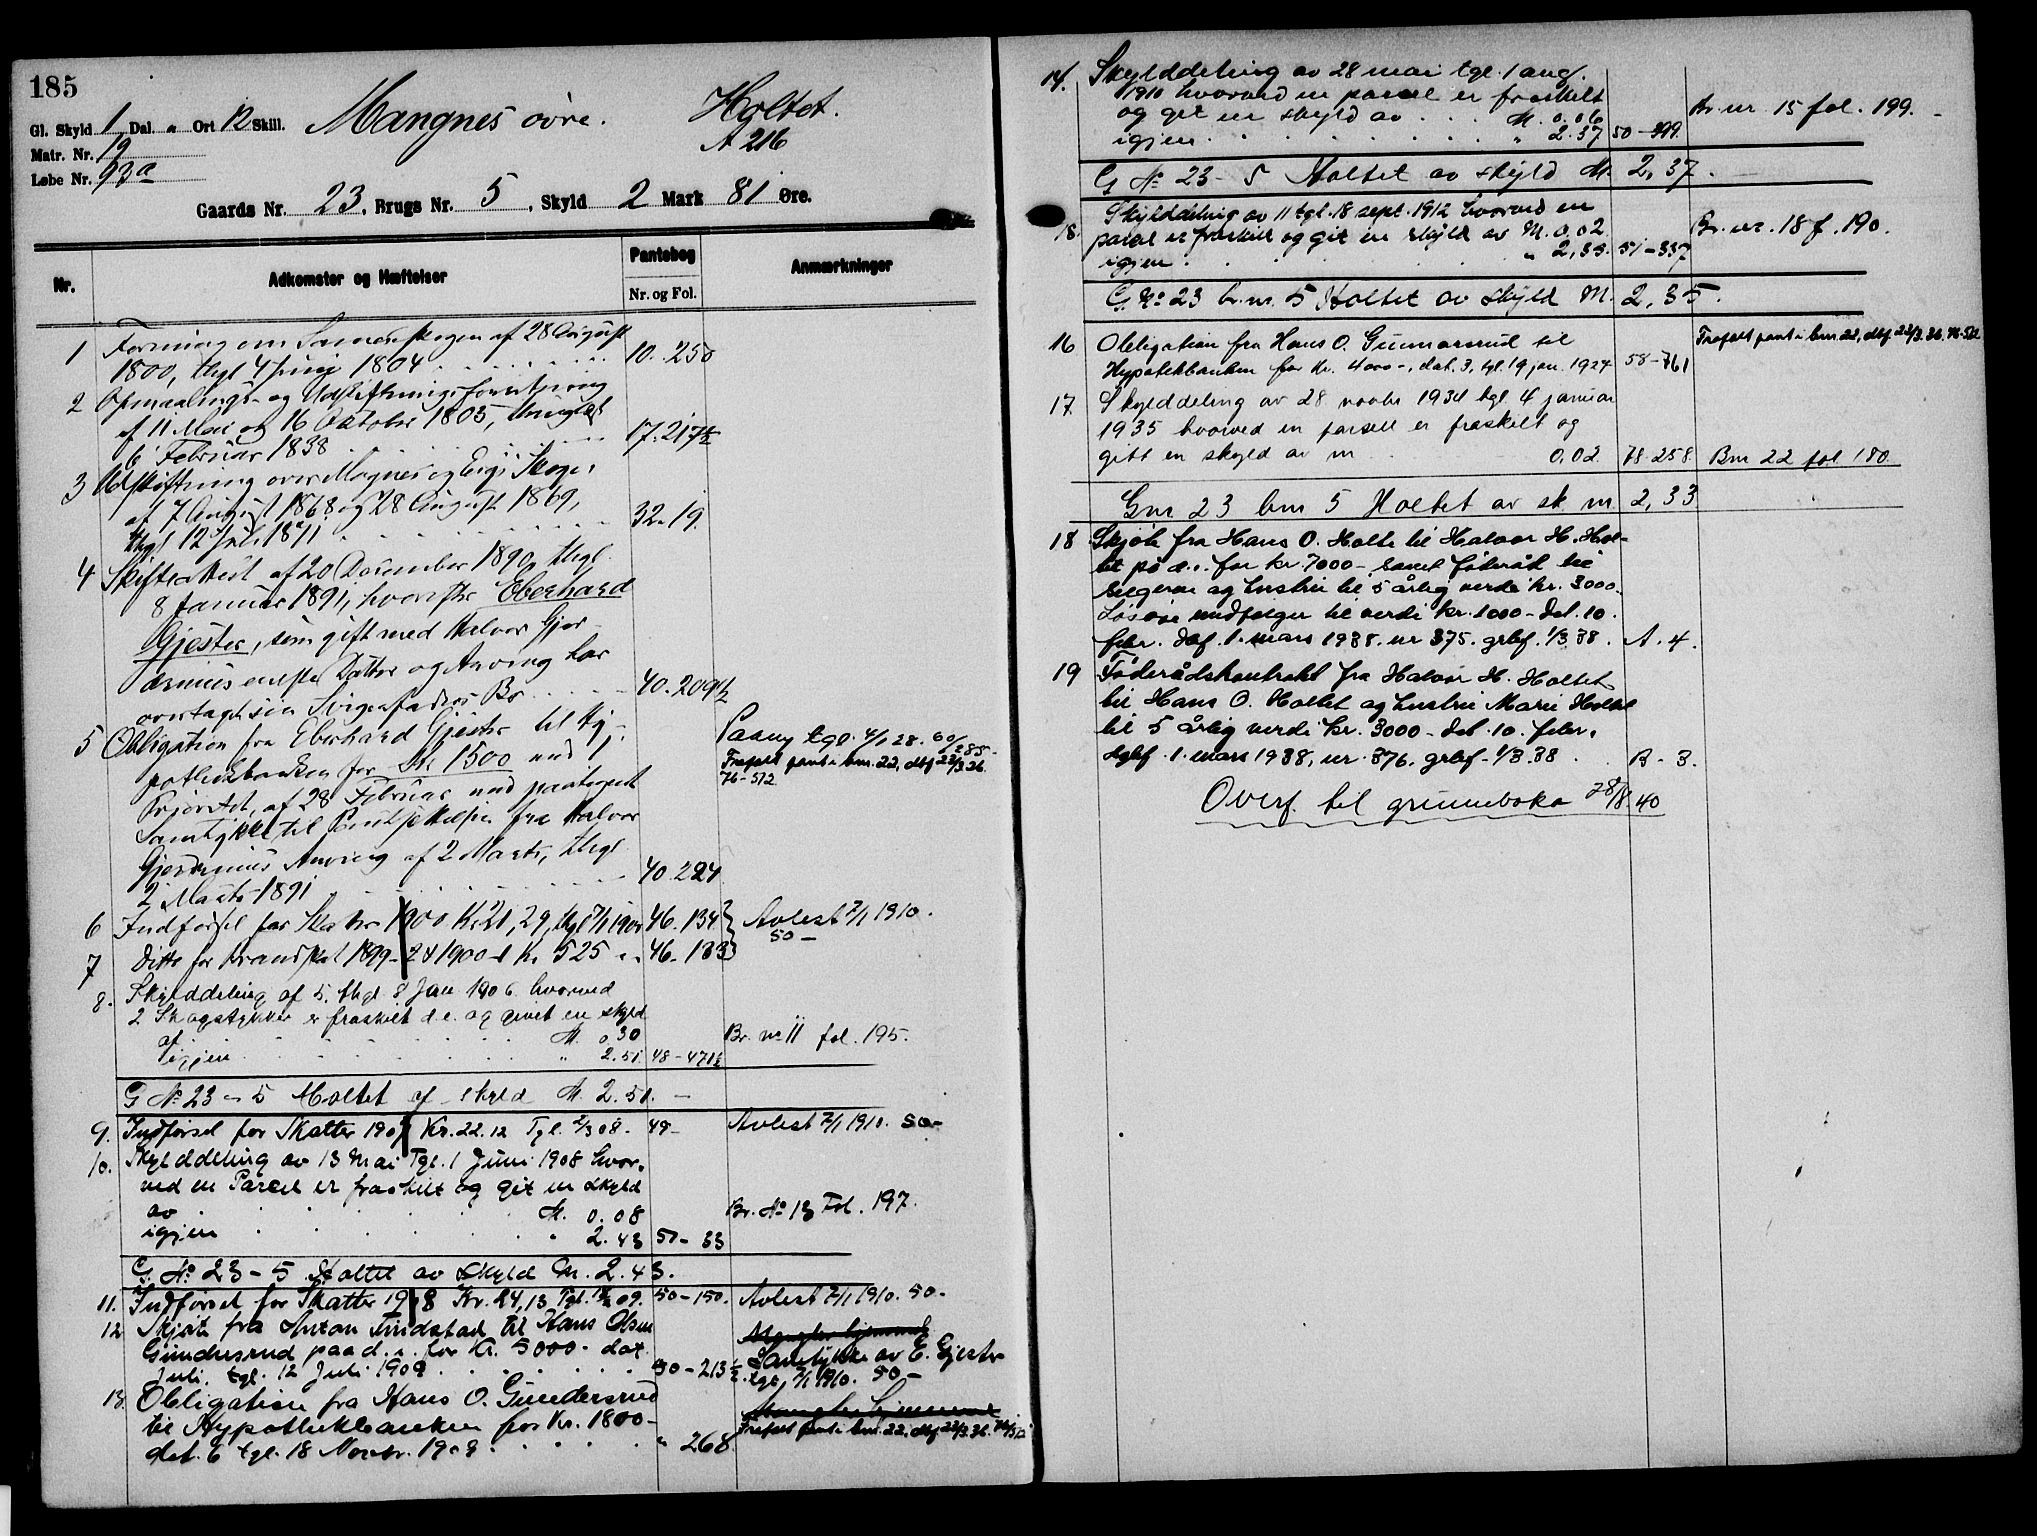 185
Gl. Skyld 1 Dal. " Ort 12 Skill. Mangnes øvre. Holtet.
Matr. Nr. 19 A 216
Løbe Nr. 93a
Gaards Nr. 23, Brugs Nr. 5, Skyld 2 Mark 81 Øre.
Nr. Adkomster og Hæftelser Pantebog Anmærkninger
Nr. og Fol.
1 Forening om Sameieskogen af 28 August
1800, thgl 4 Juni 1804 . . . 10. 250
2 Opmaalings- og Udskiftningsforretning
af 11 Mai og 16 Oktober 1805, thinglæst
6 Februar 1838 . . . 17. 217½
3 Udskiftning over Magnes og Eigs Skoger
af 7 August 1868 og 28 August 1869,
thgl 12 Juli 1871 . . . 32. 19.
4 Skifteattest af 20 December 1890, thgl.
8 Januar 1891, hvorefter Eberhard
Gjester, som gift med Halvor Gjor-
dsmius eneste Datter og Arving har
overtaget sin Svigerfaders Bo . . . 40. 209½
5 Obligation fra Eberhard Gjester til Hy-
pothekbanken for Kr 1500 med 1
Prioritet, af 28 Februar med paategnet
Samtykke til Pantsættelsen fra Halvor
Arving af 2 Marts, thgl
2 Marts 1891 . . . 40. 224
Paany tgl. 4/1 28. 60/285-
Frafalt pant i bnr. 22, dbf 23/3.36.
76-572
6 Indførsel for Skatter 1900 Kr 21,29, thgl 7/1 1901 46. 134 } Avlest 7/1 1910.
7 Ditto for Brandskat 1899-24 1900-1 Kr 525 " " 46. 133 } 50 -
8. Skylddeling af 5. thgl 8 Jan 1906 hvorved
2 Skogstykker er fraskilt d.e. og givet en skyld
af M. 0,30 Br. no 11 fol. 195.
igjen . . . " 2.51. 48-471½
G No 23 - 5 Holtet af skyld M. 2.51. -
9. Indførsel for Skatter 1907 Kr. 22.12 Tgl. 2/3 08. 49- Avlest 7/1 1910. 50-
10. Skylddeling av 13 Mai Tgl. 1 Juni 1908 hvor-
ved en Parcel er fraskilt og git en skyld
av . . . M. 0.08 Br. No 13 Fol. 197.
igjen . . . " 2.43 50- 33
G. No 23 - 5 Holtet av skyld M. 2.43.
11. Indførsel for Skatter 1908 Kr. 24,13 Tgl. 09. 50-150. Avlest 7/1 1910. 50-
12 Skjøte fra Anton Tindstad til Hans Olsen
Gundersrud paa d.e. for Kr. 5000- dat.
Juli, tgl. 12 Juli 1909 . . . 50-213½
Mangler hjemmel
Samtykke av E. Gjester
tgl. 7/1 1910. 50-
13. Obligation fra Hans O. Gundersrud
til Hypothekbanken for Kr. 1800-
dat. 6 tgl. 18 Novbr. 1909 . . . " 268
Mangler hjemmel
Frafalt pant i bnr. 22, dbf 23/3.36.
14. Skylddeling av 28 mai tgl. 1 aug.
1910 hvorved en parcel er fraskilt
og git en skyld av . . . M. 0.06 Br. nr. 15 fol. 199.
igjen . . . " 2.37 50-399.
G No 23 - 5 Holtet av skyld M. 2,37.
18. Skylddeling av 11 tgl. 18 sept. 1912 hvorved en
parcel er fraskilt og git en skyld av M. 0,02 Br. nr. 18 f. 190.
igjen . . . " 2,35. 51-337
G. No 23 br. nr. 5 Holtet av skyld M. 2,35.
16 Obligation fra Hans O. Gunnarsrud til
Hypotekbanken for Kr. 4000-, dat. 3, tgl. 19 jan. 1927 58-761
Frafalt pant i bnr 22, dbf 23/3.36. 76-572
17 Skylddeling av 28 novbr 1934 tgl 4 januar
1935 hvorved en parsell er fraskilt og
gitt en skyld av m . . . 0,02. 78. 258. Bnr 22 fol 180.
Gnr 23 bnr 5 Holtet av sk m 2,33
18 Skjøte fra Hans O. Holte til Halvor H. Hol-
tet på d.e. for kr. 7000- samt føderåd til
selgeren og hustru til 5 årlig verdi kr. 3000.
Løsøre medfølger til verdi kr. 1000- dat. 10.
febr. dbf. 1. mars 1938. nr 375. grbf. 1/3 38. A. 4.
19 Føderådskontrakt fra Halvor H. Holtet
til Hans O. Holtet og hustru Marie Holtet
til 5 årlig verdi kr. 3000- dat. 10. febr.
dgbf. 1. mars 1938, nr. 376. grbf. 1/3 38. B. 3.
Overf. til grunnboka 28/8.40